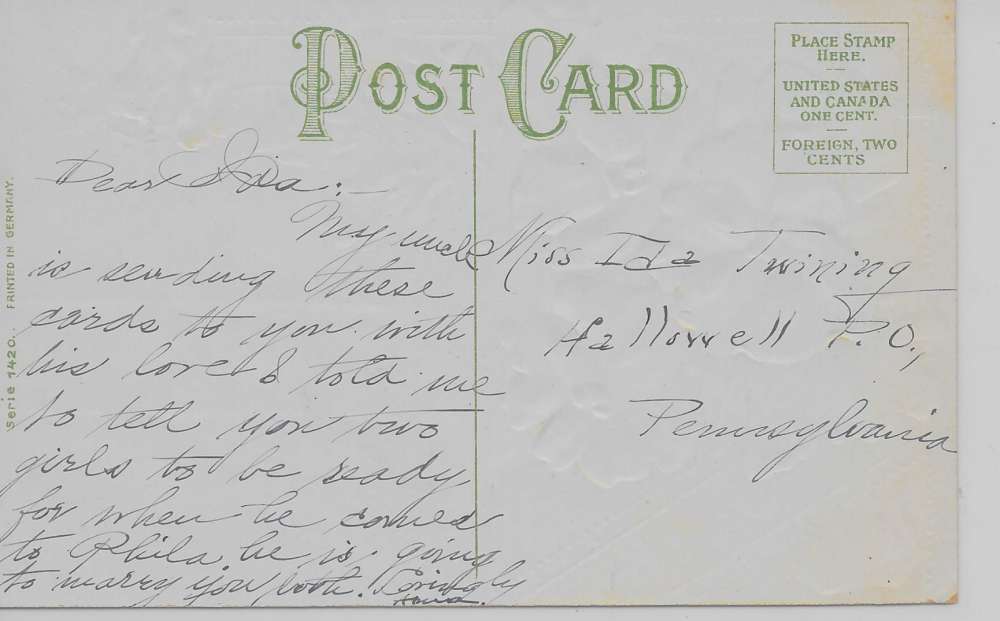 POST CARD
PLACE STAMP
HERE.
UNITED STATES
AND CANADA
ONE CENT.
FOREIGN, TWO
CENTS
Serie 1420. PRINTED IN GERMANY.
Dear Ida:—
My uncle
is sending these
cards to you with
his love & told me
to tell you two
girls to be ready
for when he comes
to Phila he is going
to marry you both.
Miss Ida Twining
Hallowell P.O.,
Pennsylvania